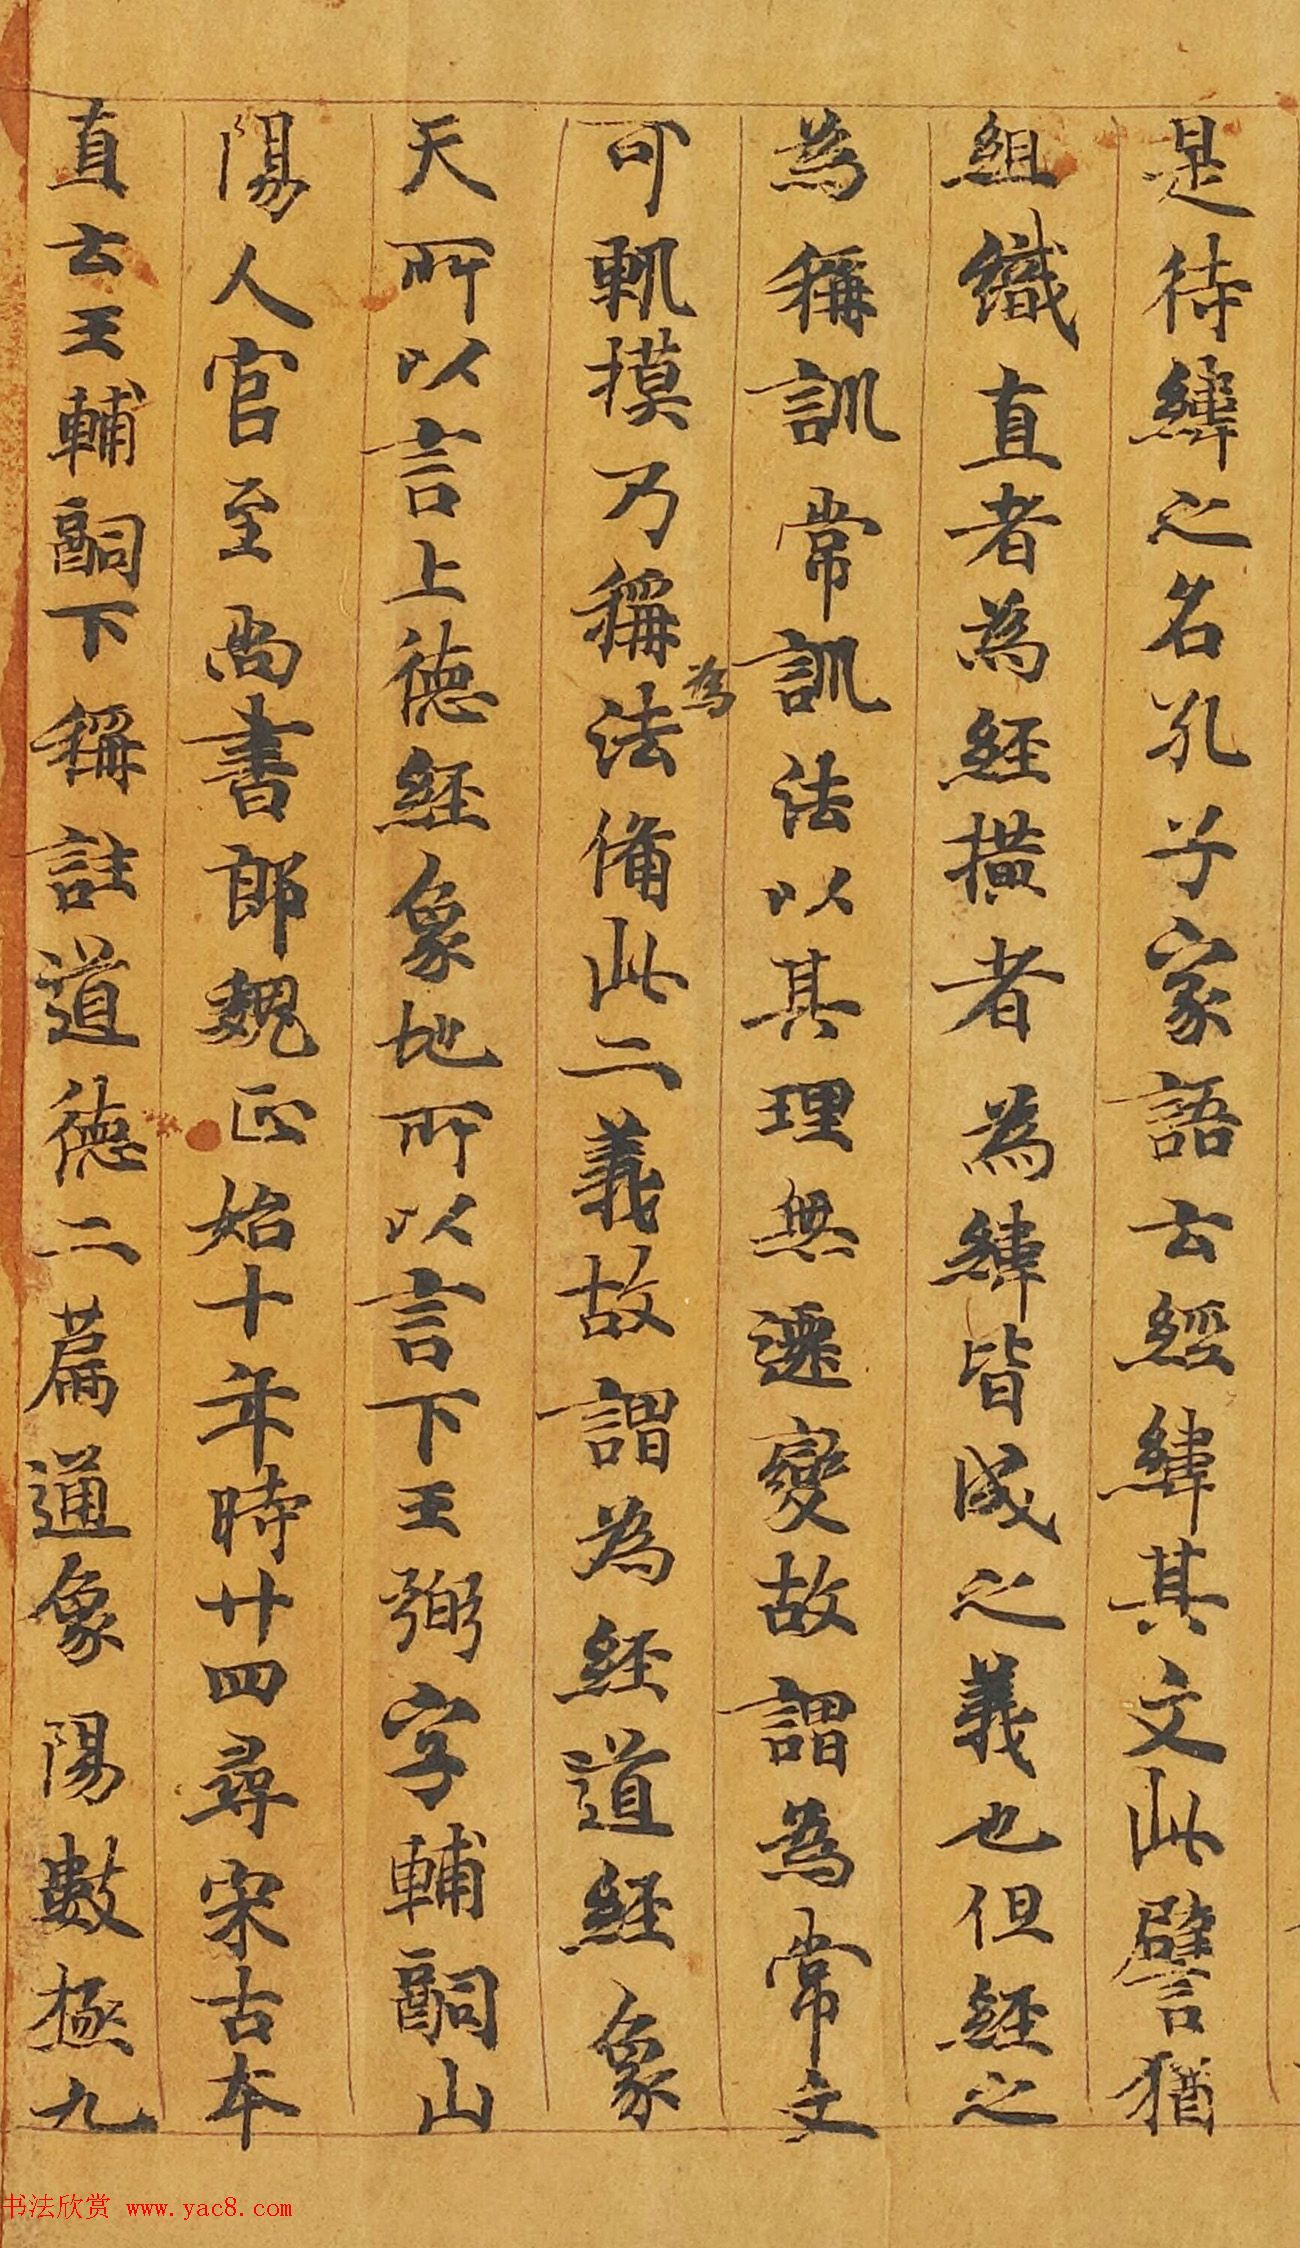 是待緯之名孔子家語云經緯其文此譬猶
組織直者為經橫者為緯皆成之義也但經之
為稱訓常訓法以其理無遷變故謂為常文
可軌摸乃稱為法備此二義故謂為經道經象
天所以言上德經象地所以言下王弼字輔嗣山
陽人官至尚書郎魏正始十年時廿四尋宋古本
直云王輔嗣下稱註道德二篇通象陽數極九
书法欣赏 www.yac8.com